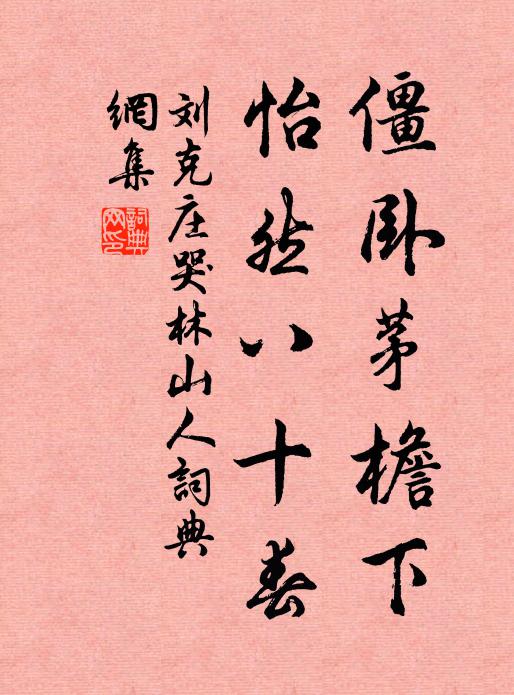 僵卧茅檐下
怡然八十春
刘克庄哭林山人詞典
網集
詞典網印